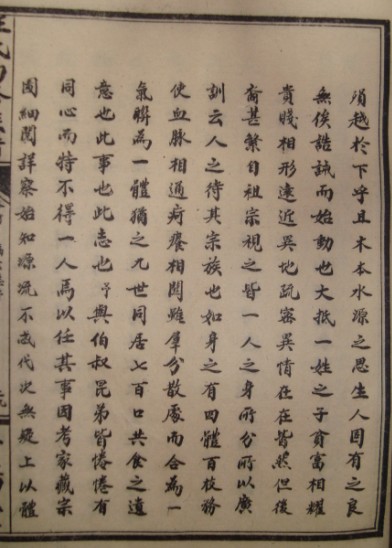 殞越於下乎且木本水源之思生人固有之良
無俟誥誡而始動也大抵一姓之子貧富相耀
貴賤相形遠近異地疏密異情在在皆然但後
裔甚繁自祖宗視之皆一人之身所分所以廣
訓云人之待其宗族也如身之有四體百枝務
使血脉相通疴癢相關雖羣分散處而合為一
氣聯為一體猶之九世同居七百口共食之遺
意也此事也此志也予與伯叔昆弟皆惓惓有
同心而特不得一人焉以任其事因考家藏宗
圖細閱詳察始知源流不惑代次無疑上以體